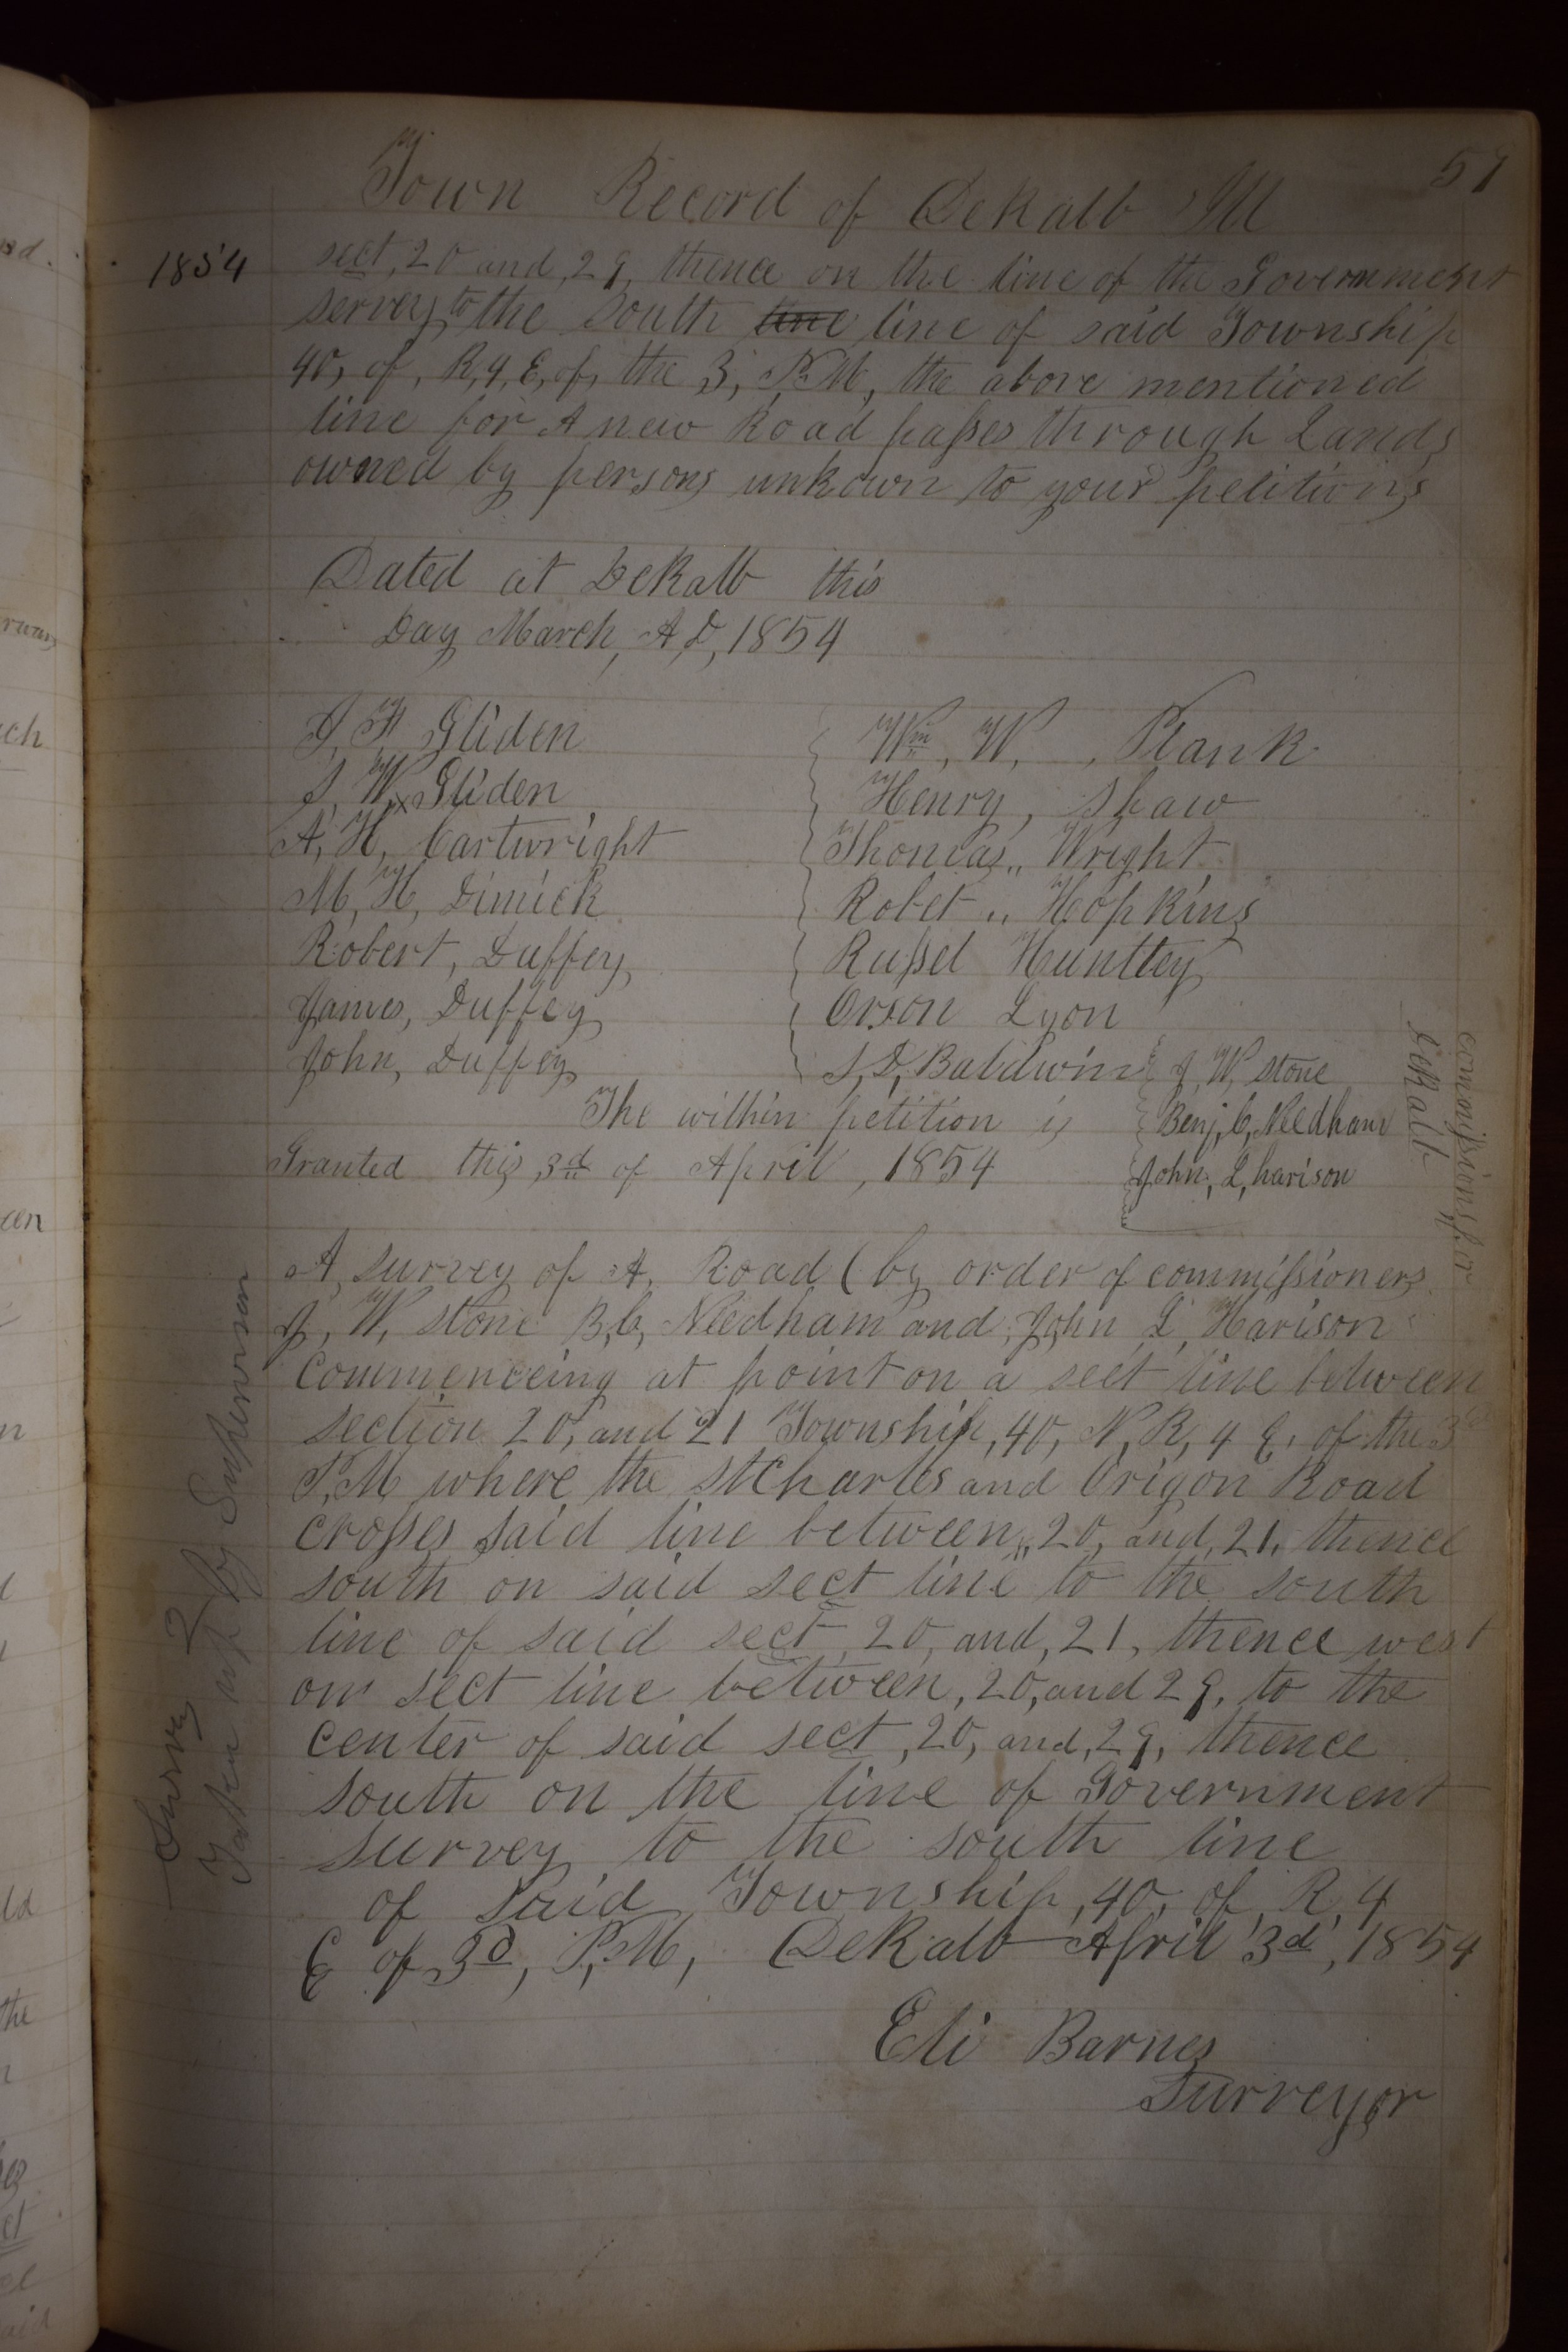 57
Town Record of DeKalb Ill
1854
sect, 20 and, 29, thence on the line of the Government
servey to the South line line of said Township
40, of, R, 4, E, of, the 3, P.M, the above mentioned
line for A new Road passes through Lands
owned by persons unkown to your petitions
Dated at DeKalb this
Day March, A D, 1854
J, F Gliden Wm, W, , Plank
J, W, x Gliden Henry, Shaw
A, H, Cartwright Thomas,, Wright
M, H, Dimick Robet ,, Hopkins
Robert, Duffey Russel Huntley
James, Duffey Orson Lyon
John, Duffey S, D, Baldwin J, W, Stone
The within petition is Benj, C, Needham
Granted this 3d of April, 1854 John, L, harison
commissions for
DeKalb
A, Survey of A, Road (by order of commissioners
J, W, Stone B,C, Needham and, John L, Harison
Commenceing at point on a sect line between
section 20, and 21 Township, 40, N, R, 4 E, of the 3d
P,M where the StCharles and Origon Road
crosses said line between,, 20, and, 21, thence
south on said sect line to the south
line of said sect, 20, and, 21, thence west
on sect line between, 20, and 29, to the
center of said sect, 20, and, 29, thence
south on the line of Government
survey to the south line
of said Township, 40, of, R, 4
E of 3d, P,M, DeKalb April 3d, 1854
Eli Barnes
Surveyor
Survey 2
Taken up by